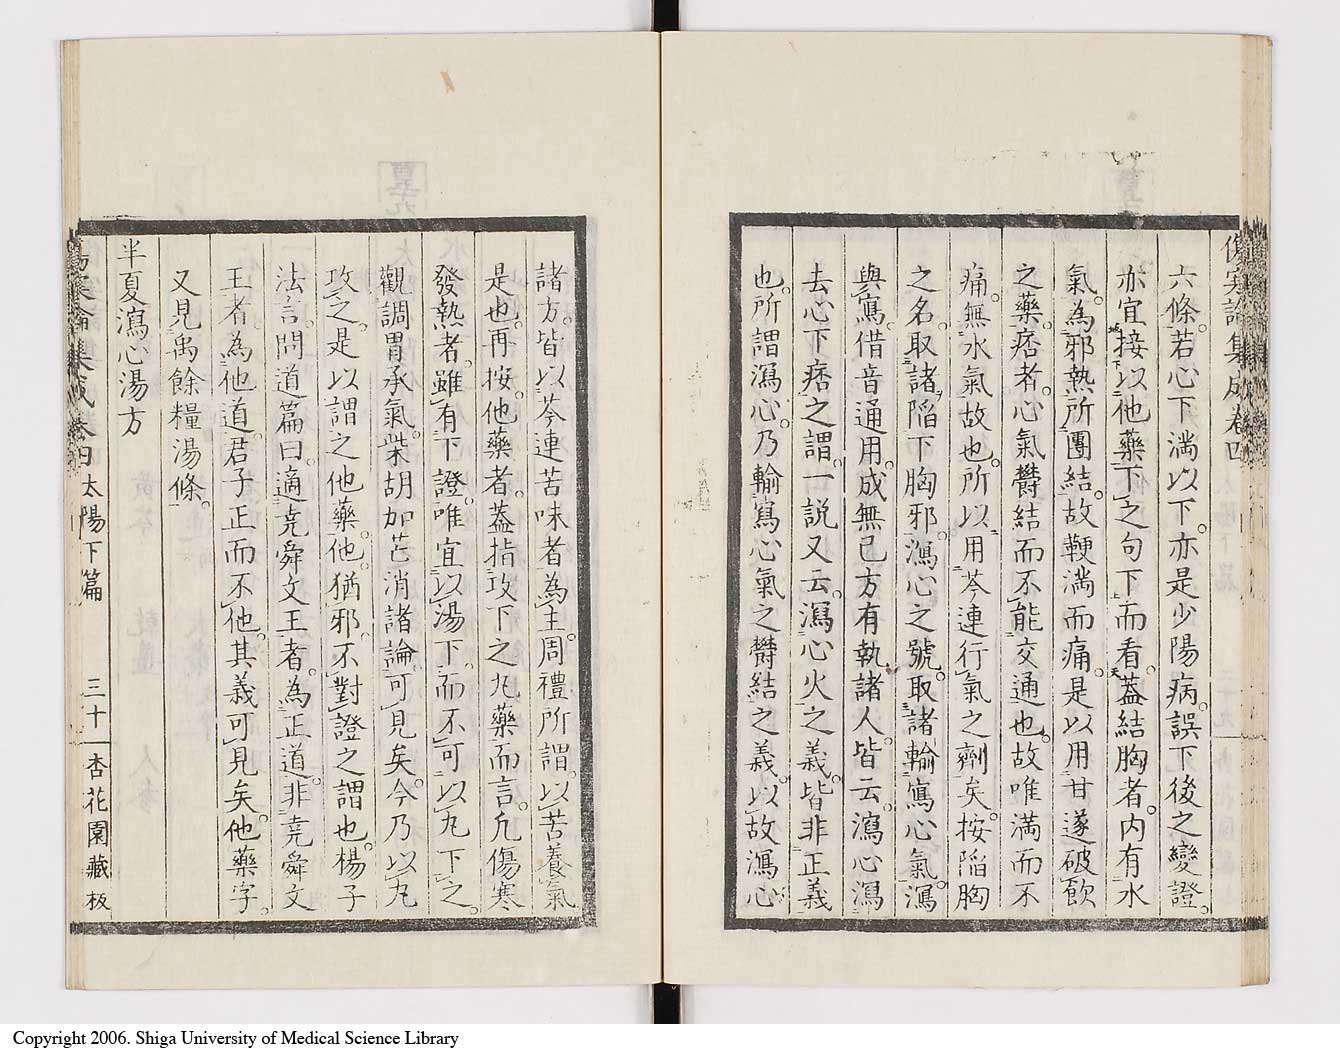 傷寒論集成卷四
六條。若心下滿以下。亦是少陽病。誤下後之變證。
亦宜接以他藥下之句下而看。蓋結胸者。內有水
氣。為邪熱所團結。故鞕滿而痛。是以用甘遂破飲
之藥。痞者。心氣欝結而不能交通也。故唯滿而不
痛。無水氣故也。所以用芩連行氣之劑矣。按陷胸
之名。取諸陷下胸邪。瀉心之號。取諸輸寫心氣。瀉
與寫。借音通用。成無己方有執諸人。皆云。瀉心瀉
去心下痞之謂。一說又云。瀉心火之義。皆非正義
也。所謂瀉心。乃輸寫心氣之欝結之義。以故瀉心
諸方。皆以芩連苦味者為主。周禮所謂。以苦養氣
是也。再按。他藥者。蓋指攻下之丸藥而言。凡傷寒
發熱者。雖有下證。唯宜以湯下。而不可以丸下之。
觀調胃承氣。柴胡加芒消諸論。可見矣。今乃以丸
攻之。是以謂之他藥。他。猶邪。不對證之謂也。楊子
法言。問道篇曰。適堯舜文王者。為正道。非堯舜文
王者。為他道。君子正而不他。其義可見矣。他藥字。
又見禹餘糧湯條。
半夏瀉心湯方
傷寒論集成卷四 太陽下篇 三十 杏花園藏板
Copyright 2006. Shiga University of Medical Science Library